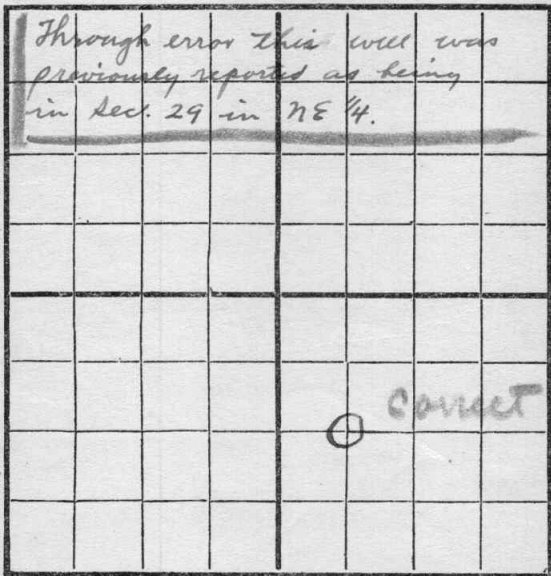 Through error this well was
previously reported as being
in Sec. 29 in NE 1/4.
Correct